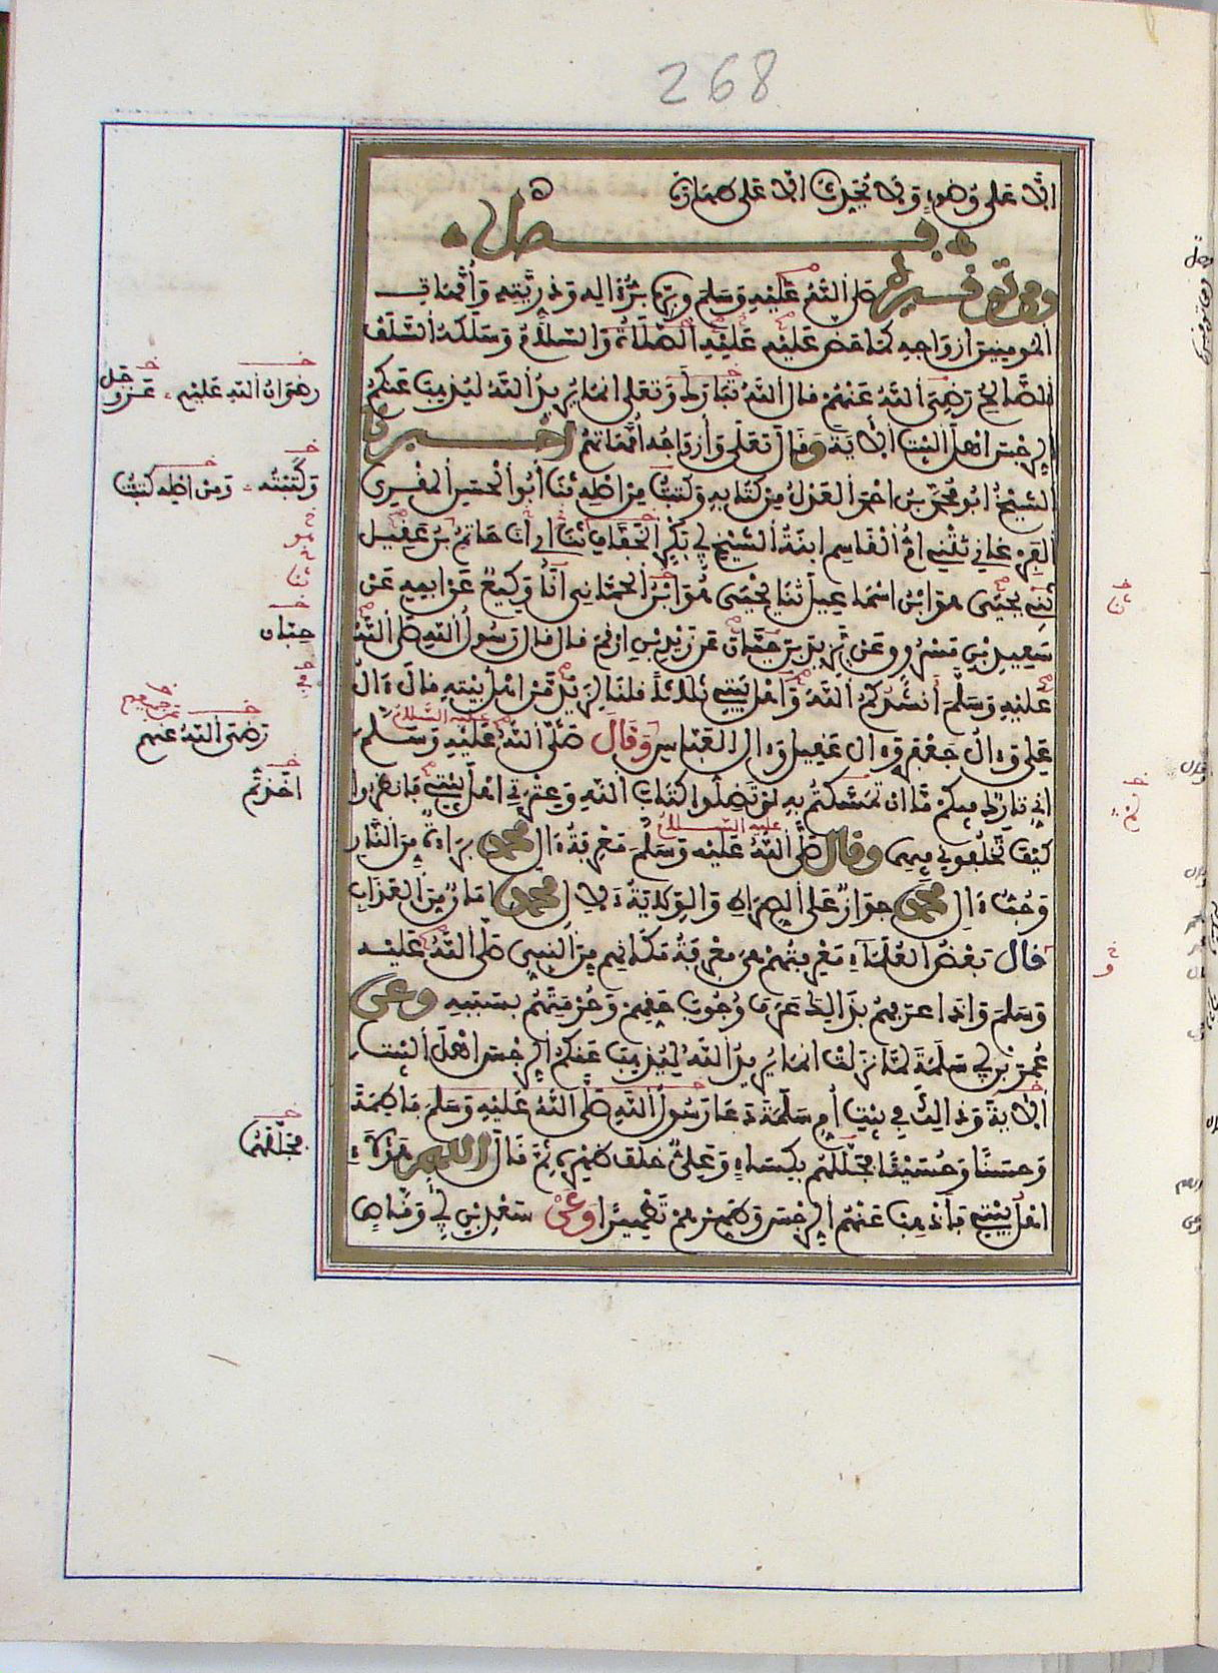 268
الا على وضوء ولا يجيزك الا على طهارة
فصل
ومن توقيره صلى الله عليه وسلم وبره بر ءاله وذريته وأمهات
المومنين ازواجه كما حض عليه عليه الصلاة والسلام وسلكه السلف
الصالح رضي الله عنهم قال الله تبارك وتعلى انما يريد الله ليذهب عنكم
الرجس اهل البيت الاية وقال تعلى وأزواجه أمهاتهم اخبرنا
الشيخ ابو محمد بن احمد العدل من كتابه وكتبت من اصله ثنا أبو الحسن المقرئ
الفرغاني حدثتني ام القاسم ابنة الشيخ ابي بكر الخفاف ثنا ابي انا حاتم بن عقيل
ثنا يحيى هو ابن اسماعيل ثنا يحيى هو ابن الحماني انا وكيع عن ابيه عن
سعيد بن مسروق عن يزيد بن حيان عن زيد بن ارقم قال قال رسول الله صلى الله
عليه وسلم أنشدكم الله واهل بيتي ثلاثا قلنا لزيد من اهل بيته قال ءال
علي وءال جعفر وءال عقيل وءال العباس وقال صلى الله عليه وسلم
اني تارك فيكم ما ان تمسكتم به لن تضلوا كتاب الله وعترتي اهل بيتي فانظروا
كيف تخلفوني فيهما وقال صلى الله عليه وسلم معرفة ءال محمد براءة من النار
وحب ءال محمد جواز على الصراط والولاية لآل محمد امان من العذاب
قال بعض العلماء معرفتهم هي معرفة مكانهم من النبي صلى الله عليه
وسلم واذا عرفهم بذالك عرف وجوب حقهم وحرمتهم بسببه وعن
عمر بن ابي سلمة لما نزلت انما يريد الله ليذهب عنكم الرجس اهل البيت
الاية وذالك في بيت أم سلمة دعا رسول الله صلى الله عليه وسلم فاطمة
وحسنا وحسينا فجللهم بكساء وعلي خلف ظهره ثم قال اللهم هؤلاء
اهل بيتي فأذهب عنهم الرجس وطهرهم تطهيرا وعن سعد بن أبي وقاص
رضوان الله عليهم - عز وجل
وكتبته - ومن اصله كتبت
ثنا
حيان
رضي الله عنهم
عليه السلام
اخذتم
عليه السلام
فجللهم